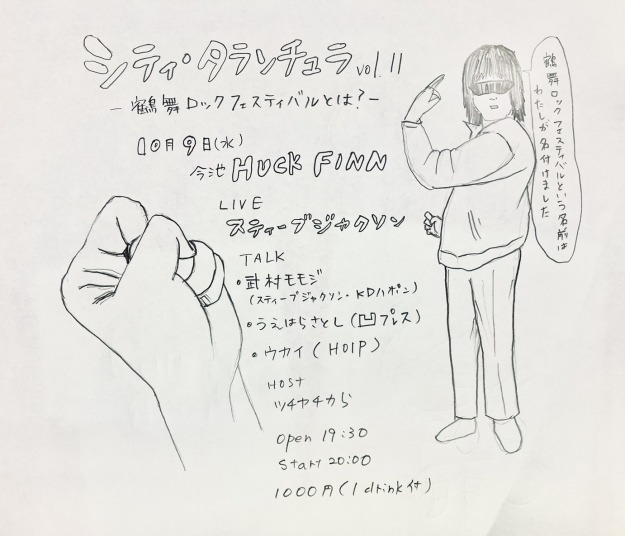 シティ・タランチュラ vol.11
－鶴舞ロックフェスティバルとは?－
10月9日(水)
今池 HUCK FINN
LIVE
スティーブジャクソン
TALK
・武村モモジ
(スティーブジャクソン・KDハポン)
・うえはらさとし(凹プレス)
・ウカイ(HOIP)
HOST
ツチヤチから
open 19:30
start 20:00
1000円(1drink付)
鶴舞ロックフェスティバルという名前は
わたしが名付けました